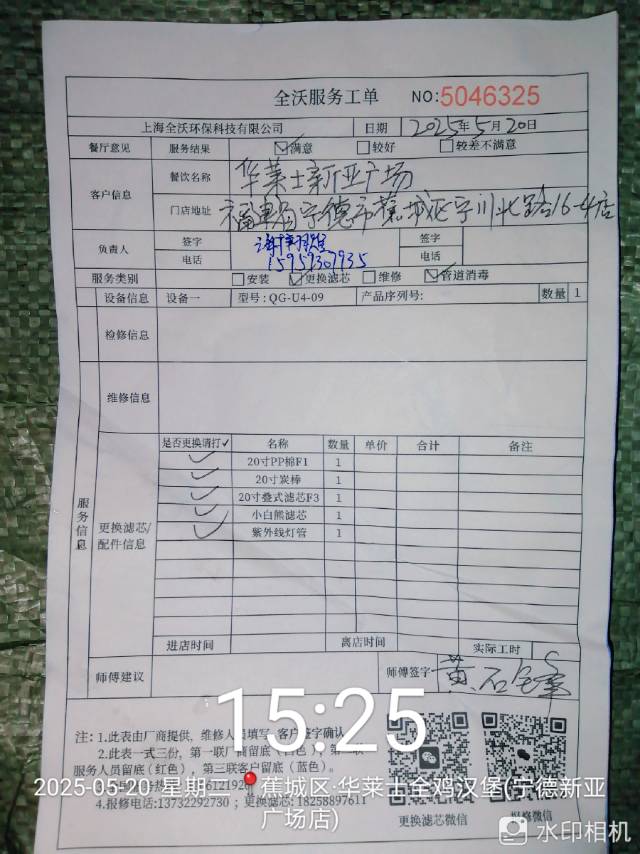 全沃服务工单 NO:5046325
上海全沃环保科技有限公司 日期 2025年5月20日
餐厅意见 服务结果 ☑满意 □较好 □较差不满意
客户信息 餐饮名称 华莱士新亚广场
门店地址 福建省宁德市蕉城区宁川北路16-4店
负责人 签字 签字
电话 15959307935 电话
服务类别 □安装 ☑更换滤芯 □维修 ☑管道消毒
设备信息 设备一 型号:QG-U4-09 产品序列号: 数量 1
检修信息
维修信息
服务信息
更换滤芯/配件信息
是否更换请打✓ 名称 数量 单价 合计 备注
✓ 20寸PP棉F1 1
✓ 20寸炭棒 1
✓ 20寸叠式滤芯F3 1
✓ 小白熊滤芯 1
✓ 紫外线灯管 1
进店时间 离店时间 实际工时
师傅建议 师傅签字 黄石
15:25
注: 1.此表由厂商提供，维修人员填写，客户签字确认
2.此表一式三份，第一联厂商留底（白色），第二联
服务人员留底(红色)，第三联客户留底（蓝色）。
2025-05-20 星期二 蕉城区·华莱士全鸡汉堡(宁德新亚
广场店)
4.报修电话:13732292730；更换滤芯:18258897611
更换滤芯微信 报修微信
水印相机